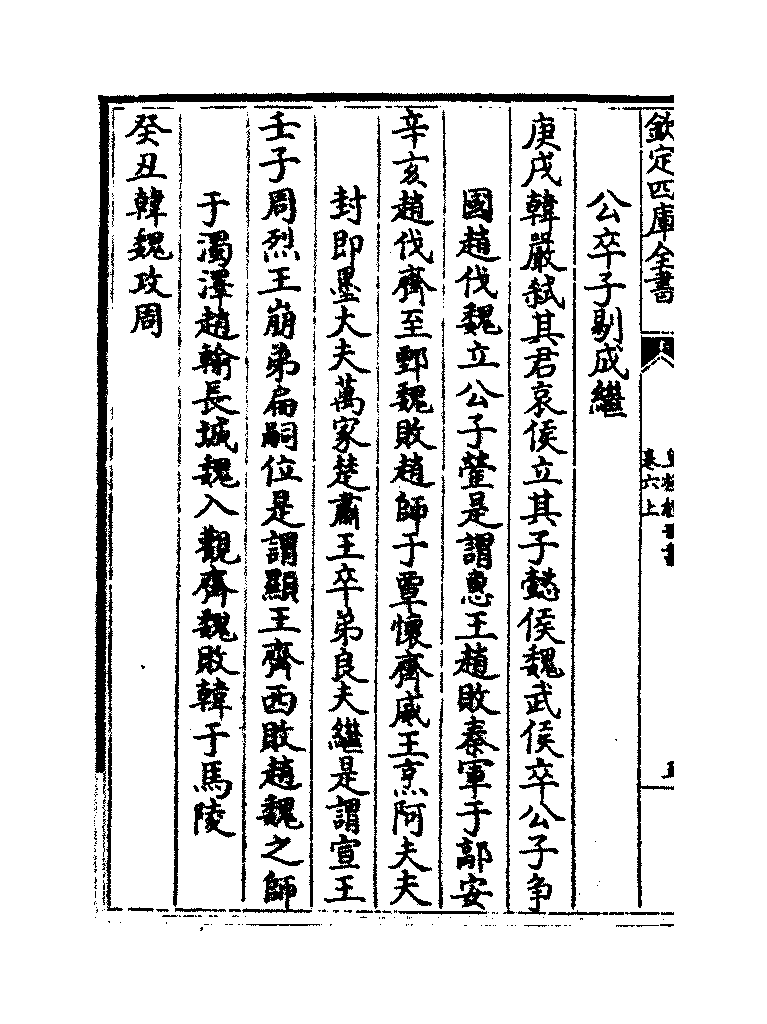 欽定四庫全書
卷六上
公卒子剔成繼
庚戌韓嚴弑其君哀侯立其子懿侯魏武侯卒公子争
國趙伐魏立公子罃是謂惠王趙敗秦軍于鄗安
辛亥趙伐齊至鄄魏敗趙師于覃懷齊威王烹阿大夫
封即墨大夫萬家楚肅王卒弟良夫繼是謂宣王
壬子周烈王崩弟扁嗣位是謂顯王齊西敗趙魏之師
于濁澤趙輸長城魏入觀齊魏敗韓于馬陵
癸丑韓魏攻周